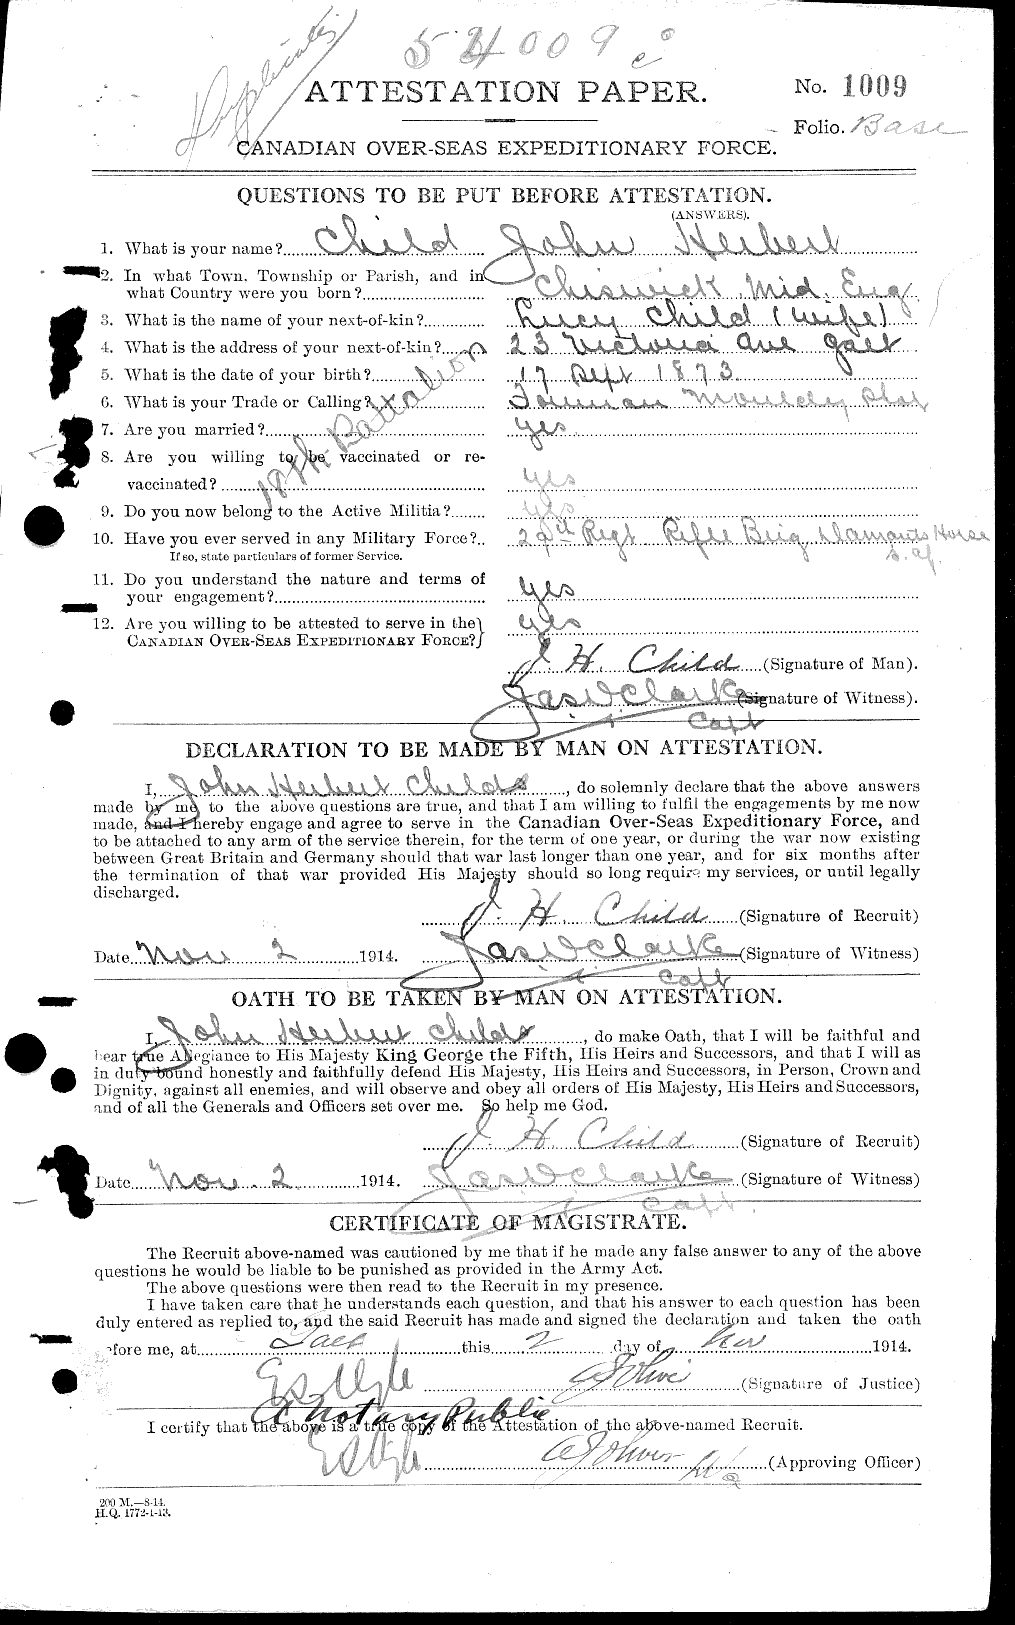 Duplicate
54009
ATTESTATION PAPER.
No. 1009
Folio. Base
CANADIAN OVER-SEAS EXPEDITIONARY FORCE.
QUESTIONS TO BE PUT BEFORE ATTESTATION.
(ANSWERS).
1. What is your name? Child John Herbert
2. In what Town, Township or Parish, and in
what Country were you born? Chiswick Mid. Eng
3. What is the name of your next-of-kin? Lucy Child (wife)
4. What is the address of your next-of-kin? 23 Victoria Ave Galt
5. What is the date of your birth? 17 Sept 1873
6. What is your Trade or Calling? Foreman
7. Are you married? yes
18th Battalion
8. Are you willing to be vaccinated or re-
vaccinated? yes
9. Do you now belong to the Active Militia? yes
10. Have you ever served in any Military Force? 29th Regt Rifle Brig Damants Horse
If so, state particulars of former Service. S. Af.
11. Do you understand the nature and terms of
your engagement? yes
12. Are you willing to be attested to serve in the
CANADIAN OVER-SEAS EXPEDITIONARY FORCE? yes
J. H. Child (Signature of Man).
Jas W Clarke (Signature of Witness).
Capt
DECLARATION TO BE MADE BY MAN ON ATTESTATION.
I, John Herbert Childs, do solemnly declare that the above answers
made by me to the above questions are true, and that I am willing to fulfil the engagements by me now
made, and I hereby engage and agree to serve in the Canadian Over-Seas Expeditionary Force, and
to be attached to any arm of the service therein, for the term of one year, or during the war now existing
between Great Britain and Germany should that war last longer than one year, and for six months after
the termination of that war provided His Majesty should so long require my services, or until legally
discharged.
J. H. Child (Signature of Recruit)
Date Nov 2 1914. Jas W Clarke (Signature of Witness)
Capt
OATH TO BE TAKEN BY MAN ON ATTESTATION.
I, John Herbert Childs, do make Oath, that I will be faithful and
bear true Allegiance to His Majesty King George the Fifth, His Heirs and Successors, and that I will as
in duty bound honestly and faithfully defend His Majesty, His Heirs and Successors, in Person, Crown and
Dignity, against all enemies, and will observe and obey all orders of His Majesty, His Heirs and Successors,
and of all the Generals and Officers set over me. So help me God.
J. H. Child (Signature of Recruit)
Date Nov. 2 1914. Jas W Clarke (Signature of Witness)
Capt.
CERTIFICATE OF MAGISTRATE.
The Recruit above-named was cautioned by me that if he made any false answer to any of the above
questions he would be liable to be punished as provided in the Army Act.
The above questions were then read to the Recruit in my presence.
I have taken care that he understands each question, and that his answer to each question has been
duly entered as replied to, and the said Recruit has made and signed the declaration and taken the oath
before me, at Galt this 2 day of Nov 1914.
(Signature of Justice)
A Notary Public
I certify that the above is a true copy of the Attestation of the above-named Recruit.
(Approving Officer)
200 M.—8-14.
H.Q. 1772-1-13.